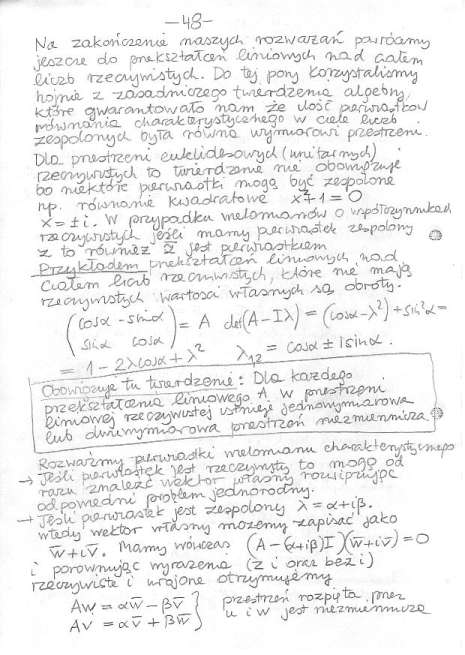 -48-
Na zakończenie naszych rozważań powróćmy
jeszcze do przekształceń liniowych nad ciałem
liczb rzeczywistych. Do tej pory korzystaliśmy
hojnie z zasadniczego twierdzenia algebry,
które gwarantowało nam że ilość pierwiastków
równania charakterystycznego w ciele liczb
zespolonych była równa wymiarowi przestrzeni.
Dla przestrzeni euklidesowych (unitarnych)
rzeczywistych to twierdzenie nie obowiązuje
bo niektóre pierwiastki mogą być zespolone
np. równanie kwadratowe x²+1=0
x=±i. W przypadku wielomianów o współczynnikach
rzeczywistych jeśli mamy pierwiastek zespolony
z to również z̄ jest pierwiastkiem
Przykładem przekształceń liniowych nad
ciałem liczb rzeczywistych, które nie mają
rzeczywistych wartości własnych są obroty.
(cosα -sinα
sinα cosα) = A det(A-Iλ) = (cosα-λ)² + sin²α =
= 1 - 2λcosα + λ² λ₁₂ = cosα ± i sinα.
Obowiązuje tu twierdzenie: Dla każdego
przekształcenia liniowego A w przestrzeni
liniowej rzeczywistej istnieje jednowymiarowa
lub dwuwymiarowa przestrzeń niezmiennicza
Rozważmy pierwiastki wielomianu charakterystycznego
→ Jeśli pierwiastek jest rzeczywisty to mogę od
razu znaleźć wektor własny rozwiązując
odpowiedni problem jednorodny.
→ Jeśli pierwiastek jest zespolony λ = α+iβ.
wtedy wektor własny możemy zapisać jako
w̄+iv̄. Mamy wówczas (A-(α+iβ)I)(w̄+iv̄)=0
i porównując wyrażenia (z i oraz bez i)
rzeczywiste i urojone otrzymujemy
Aw = αw̄ - βv̄ } przestrzeń rozpięta przez
Av = αv̄ + βw̄ } u i w jest niezmiennicza